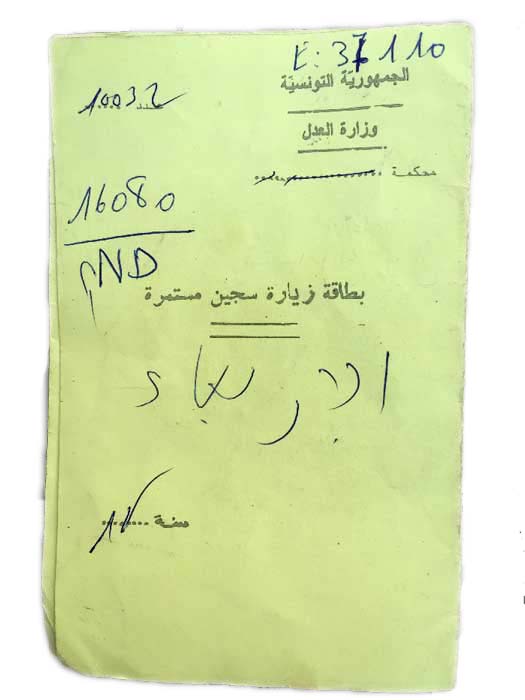 E: 37110
الجمهورية التونسية
عدد 10032
وزارة العدل
محكمة
16080
بطاقة زيارة سجين مستمرة
الاربعاء
سنة